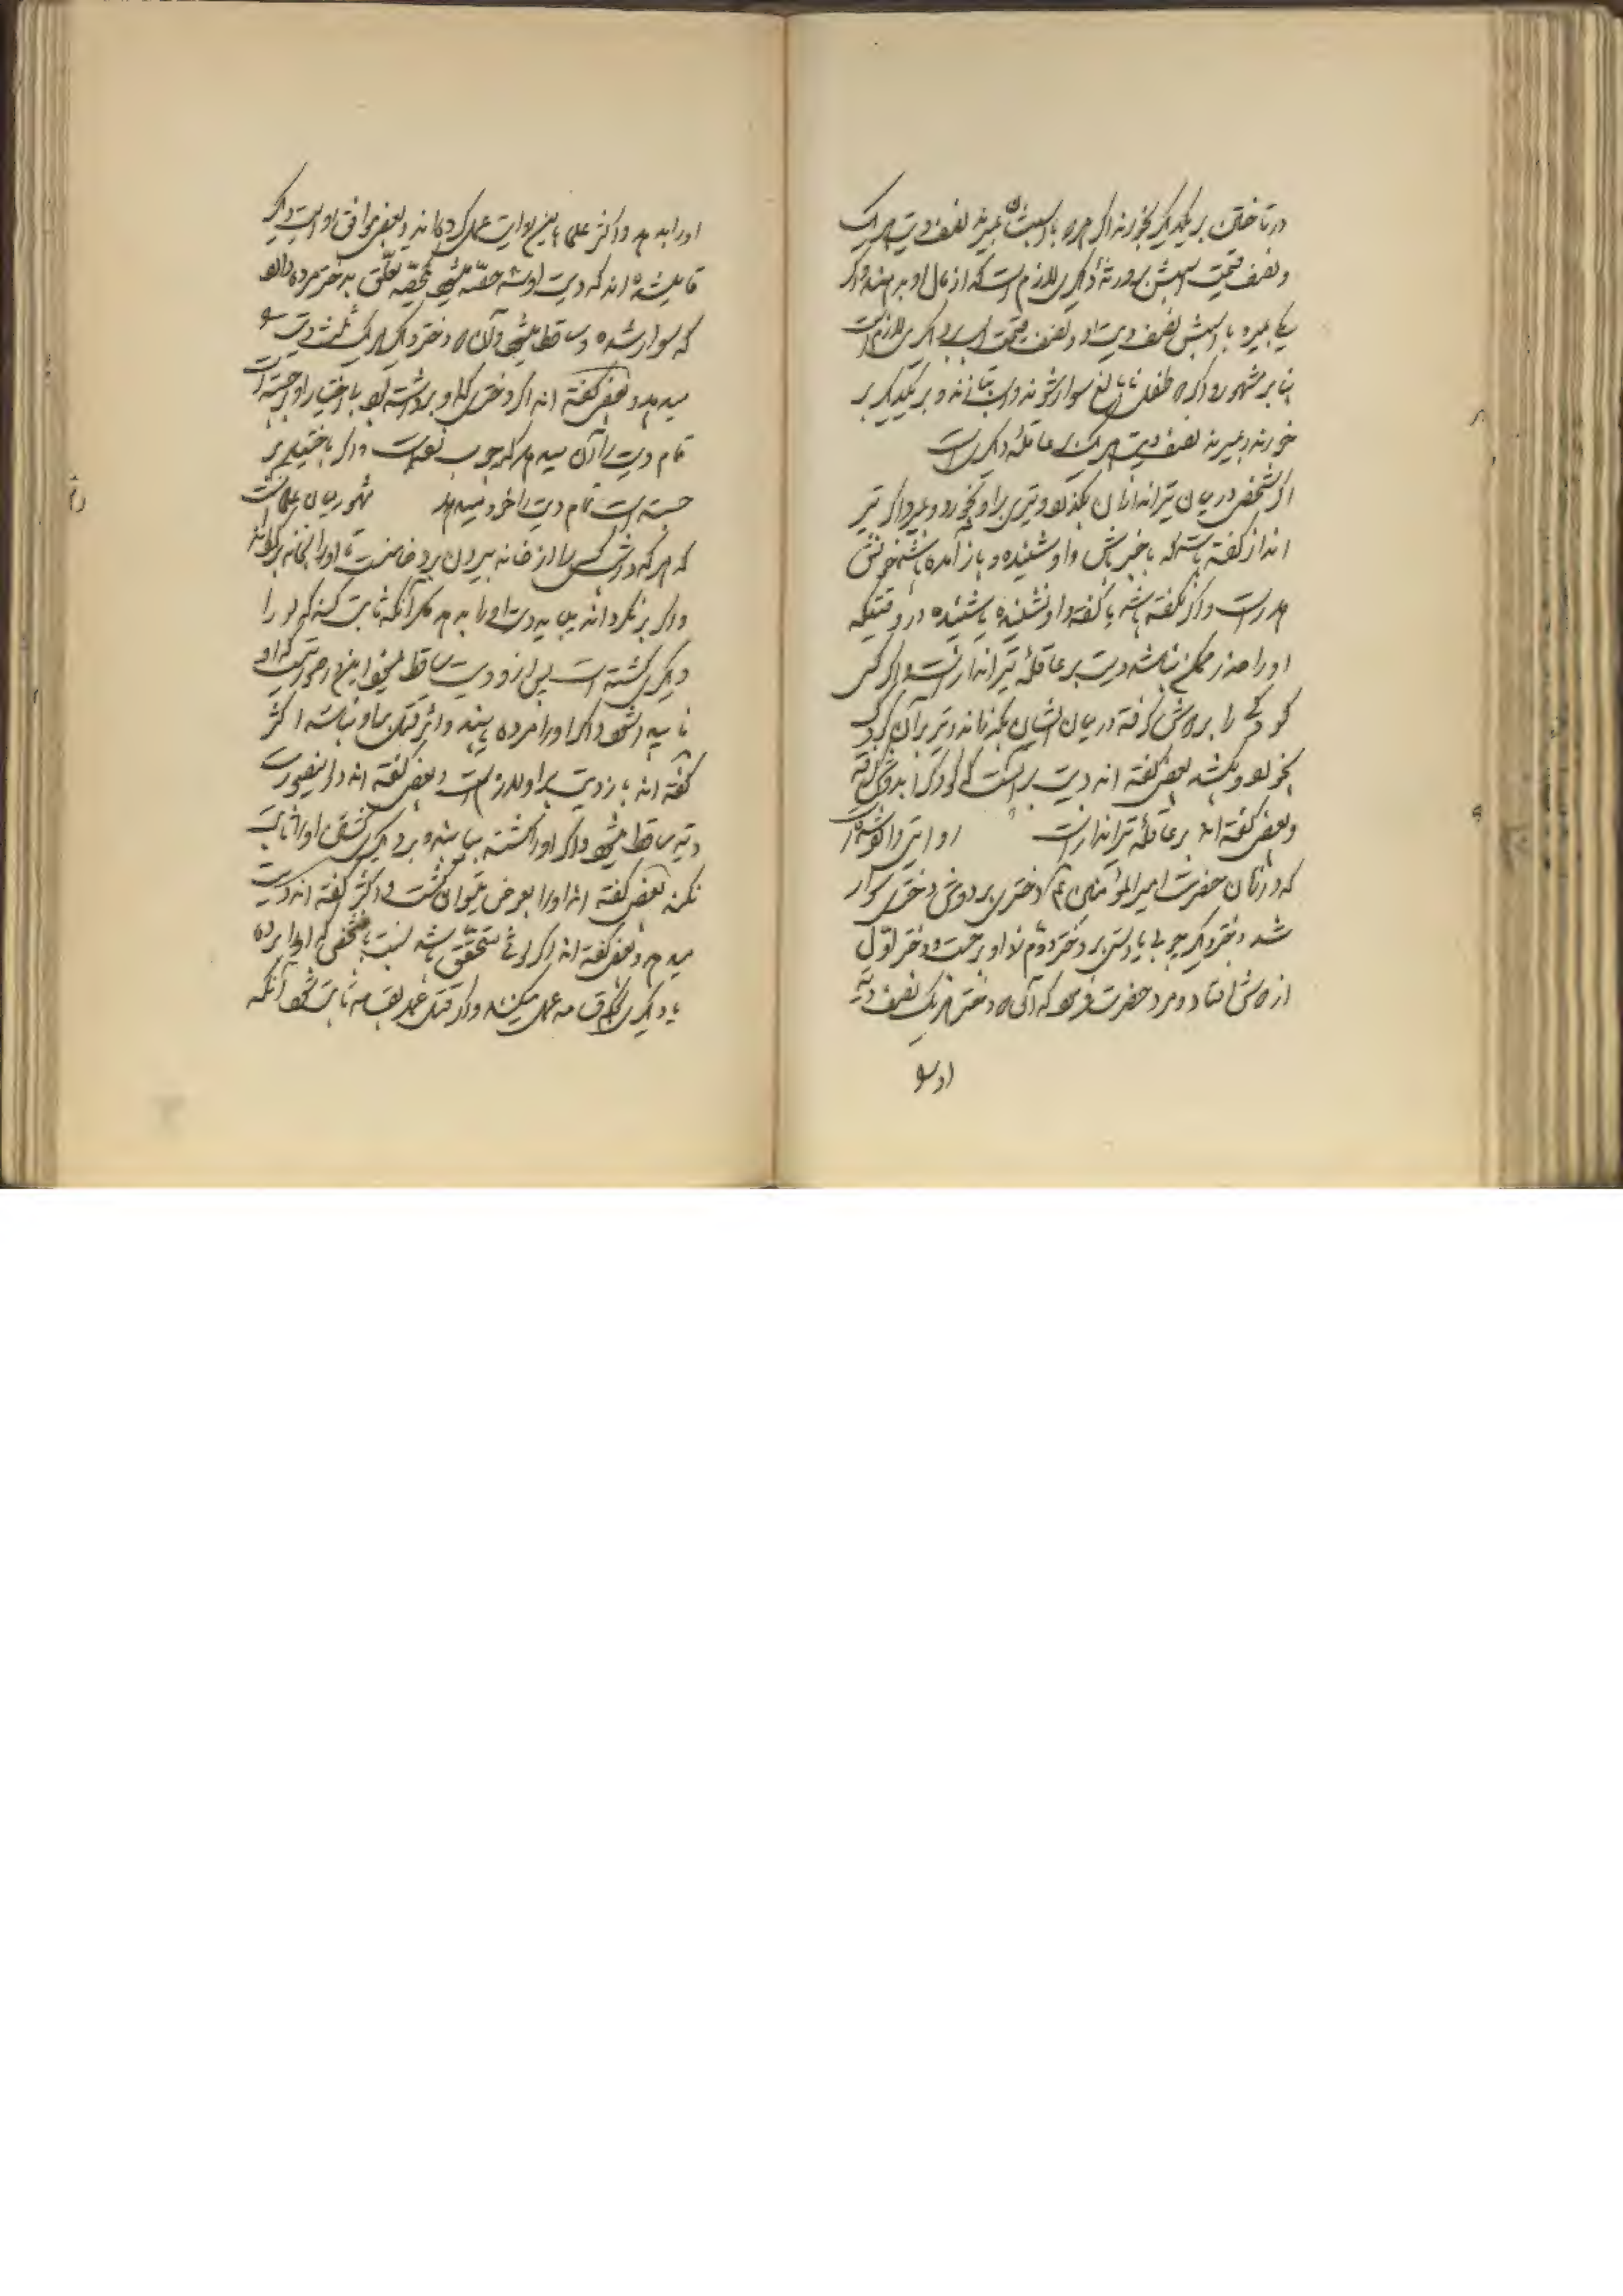 در تاختن بر یکدیگر بخورند اگر هر دو با اسبشان بمیرند نصف دیت هر یک
و نصف قیمت اسبش بر ورثهٔ دیگری لازم است که از مال او بدهند و اگر
یکی بمیرد با اسبش نصف دیت او و نصف قیمت اسب بر دیگری لازم است
بنابر مشهور و اگر دو طفل نابالغ سوار شوند و اسب بتازند و بر یکدیگر بر
خورند و بمیرند نصف دیت هر یک بر عاقلهٔ دیگری است
اگر شخصی در میان تیراندازان بگذرد و تیری بر او بخورد و بمیرد اگر تیر
انداز گفته باشد که باخبر باش و او شنیده و باز آمده باشد خونش
هدر است و اگر نگفته باشد یا گفته و او نشنیده یا شنیده در وقتیکه
او را حذر ممکن نباشد دیت بر عاقلهٔ تیرانداز است و اگر کسی
کودکی را بر دوش گرفته در میان ایشان بگذراند و تیر بر آن کودک
بخورد و بکشد بعضی گفته اند دیت بر آنست که کودک را بدوش گرفته
و بعضی گفته اند بر عاقلهٔ تیرانداز است روایتی وارد شده است
که در زمان حضرت امیرالمؤمنین ع دختری بر دوش دختری سوار
شد دختر دیگر چوبی یا دستی بر دختر دوم زد او برجست و دختر اول
از دوش افتاد و مرد حضرت فرمود که آن دو دختر هر یک نصف دیه
او را
او را بدهد و اکثر علما باین روایت عمل کرده اند و بعضی موافق روایت دیگر
قایل شده اند که دیت او سه حصّه میشود یکحصّه تعلّق بدختر مرده دارد
که سوار شده و ساقط میشود و آن دو دختر دیگر هر یک ثلث دیت را
میدهند و بعضی گفته اند اگر دختری که او را برداشته بود باختیار او جسته است
تمام دیت را آن میدهد که چوب زده است و اگر باختیار بر
جسته است تمام دیت را خود میدهد مشهور میان علما آنست
که هر که در شب کسی را از خانه بیرون برد ضامنست تا او را بخانه برگرداند
و اگر برنگرداند میباید دیت او را بدهد مگر آنکه ثابت کند که او را
دیگری کشته است پس از او دیت ساقط میشود و این در صورتیست که او
ناپیدا شود و اگر او را مرده بیابند و اثر قتل با او نباشد اکثر
گفته اند باز دیت بر او لازم است و بعضی گفته اند در اینصورت
دیه ساقط میشود و اگر او را کشته بیابند و بر دیگری کشتن او را ثابت
نکند بعضی گفته اند او را بعوض میتوان کشت و اکثر گفته اند دیت
میدهد و بعضی گفته اند اگر لوث متحقّق باشد نسبت بشخصی که او را برده
یا دیگری بحکم قسامه عمل میکنند و اگر قتل عمد بقسامه ثابت شود آنکه